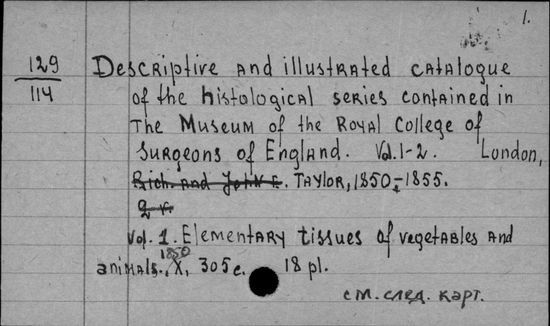 1.
129
114
Descriptive and illustrated catalogue
of the histological series contained in
The Museum of the Royal College of
Surgeons of England. Vol. 1-2. London,
Rich. and John E. Taylor, 1850-1855.
2 v.
Vol. 1. Elementary tissues of vegetables and
1850
animals. X, 305 c. 18 pl.
см. след. карт.